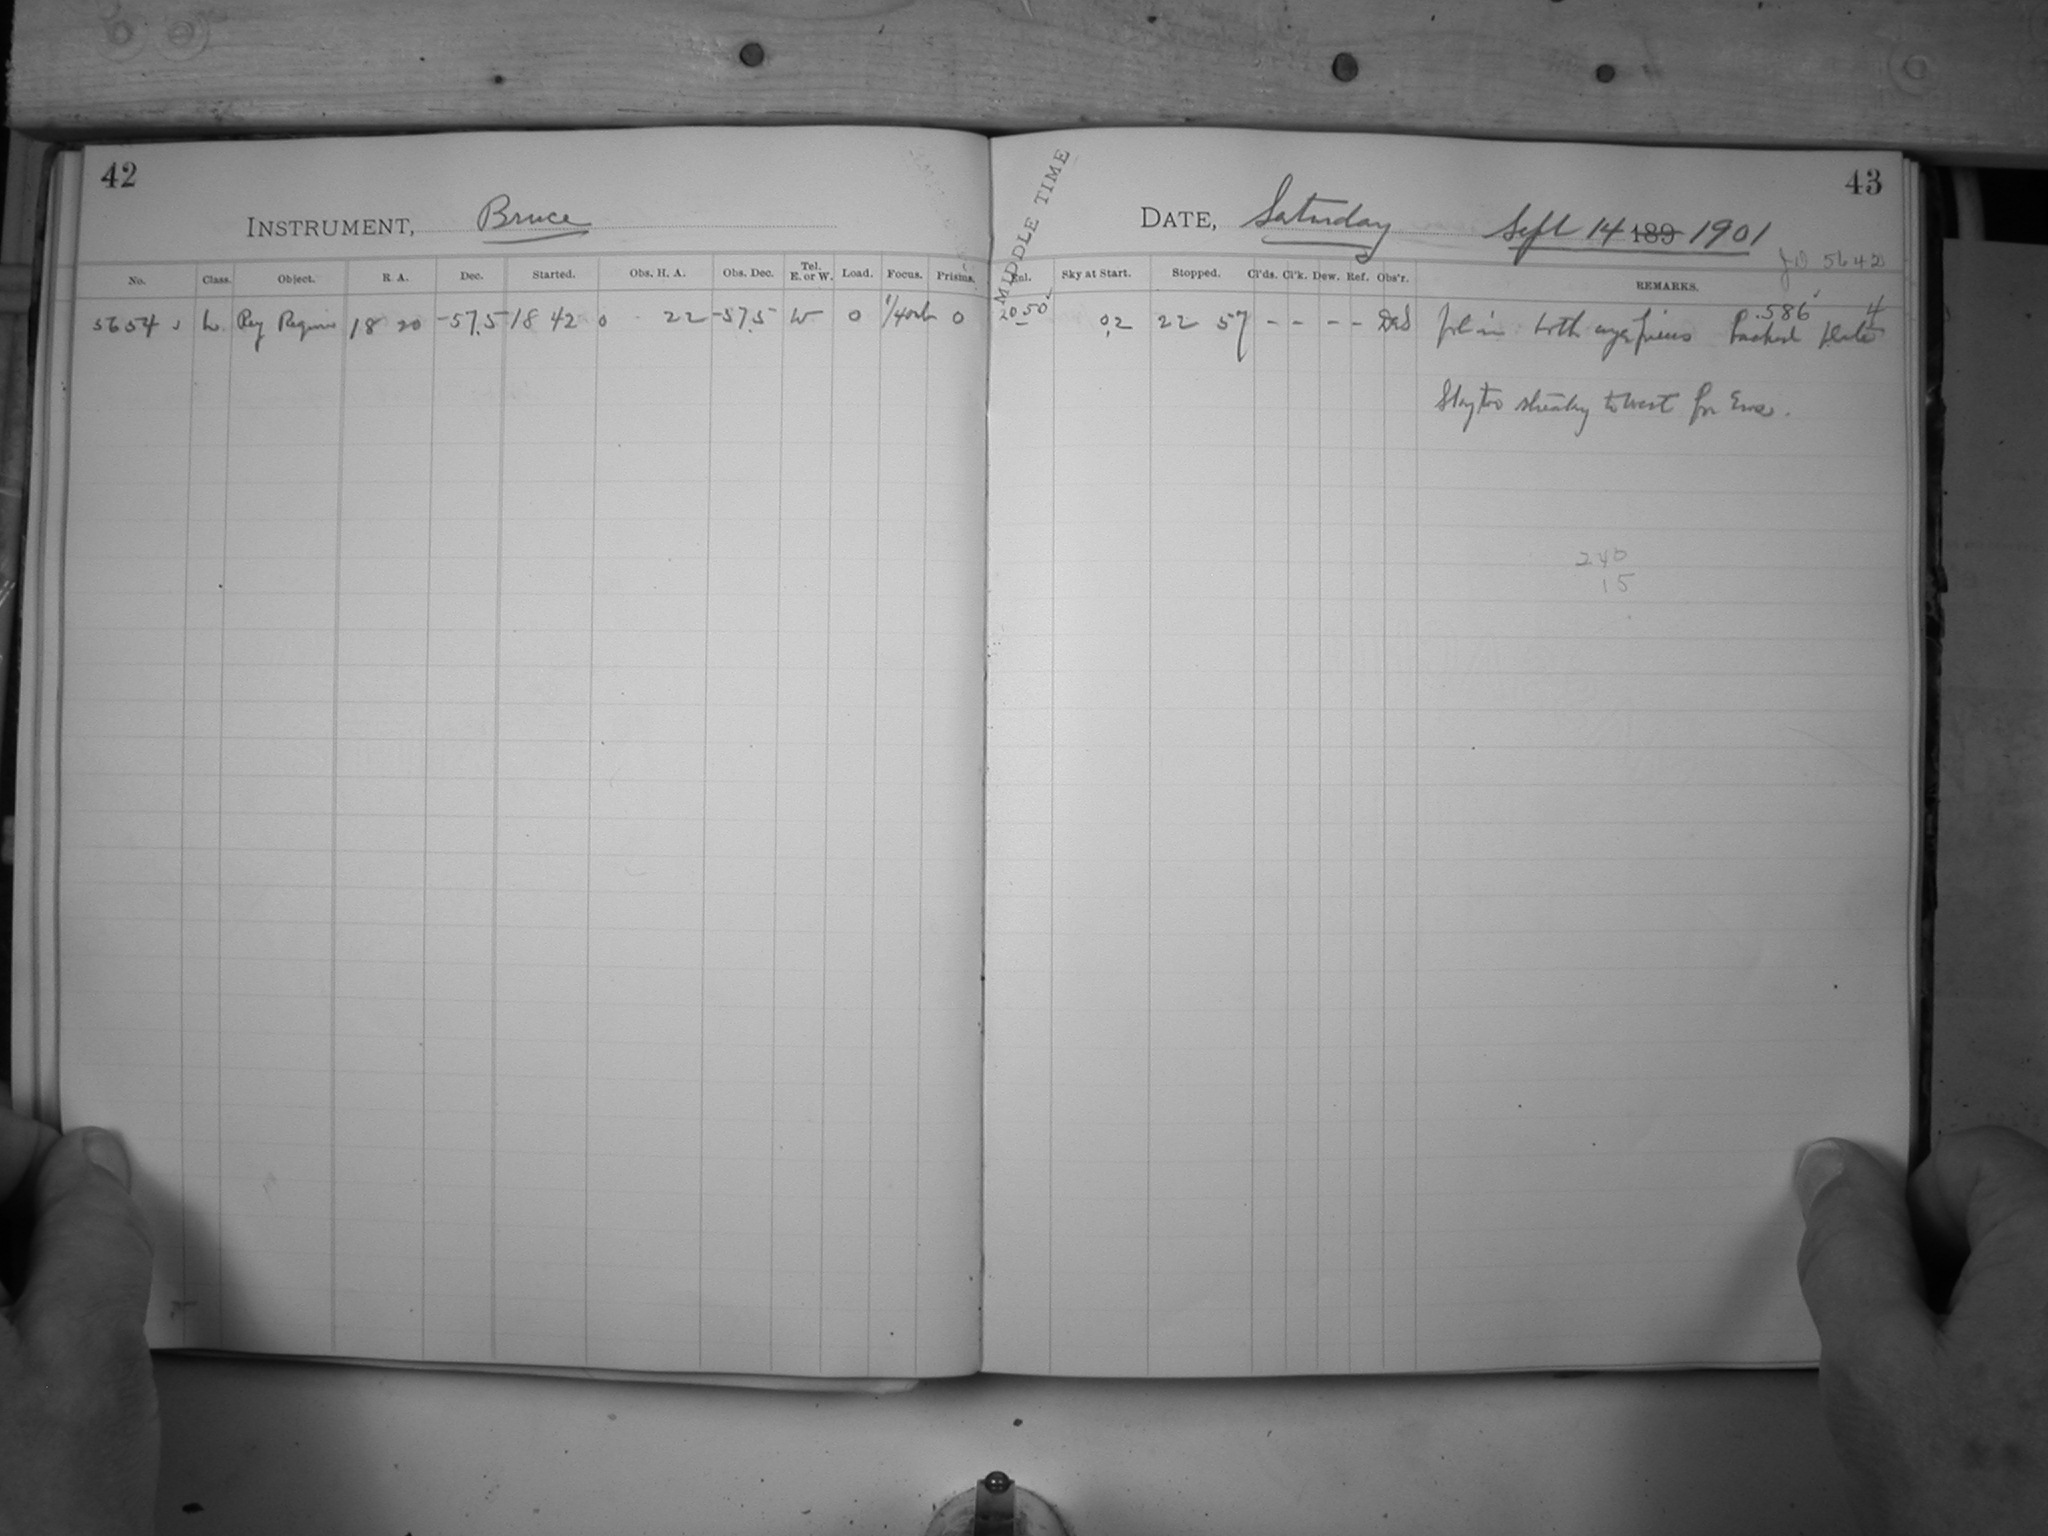 42
INSTRUMENT, Bruce
No. Class. Object. R. A. Dec. Started. Obs. H. A. Obs. Dec. Tel. E. or W. Load. Focus. Prisms.
5654 L Reg 18 20 -57.5 18 42 0 22 -57.5 W 0 0
43
MIDDLE TIME
DATE, Saturday Sept 14 189 1901
JD 5642
Enl. Sky at Start. Stopped. Cl'ds. Cl'k. Dew. Ref. Obs'r. REMARKS.
20 50 .586 4
0,2 22 57 - - - - in both
to west for
240
15